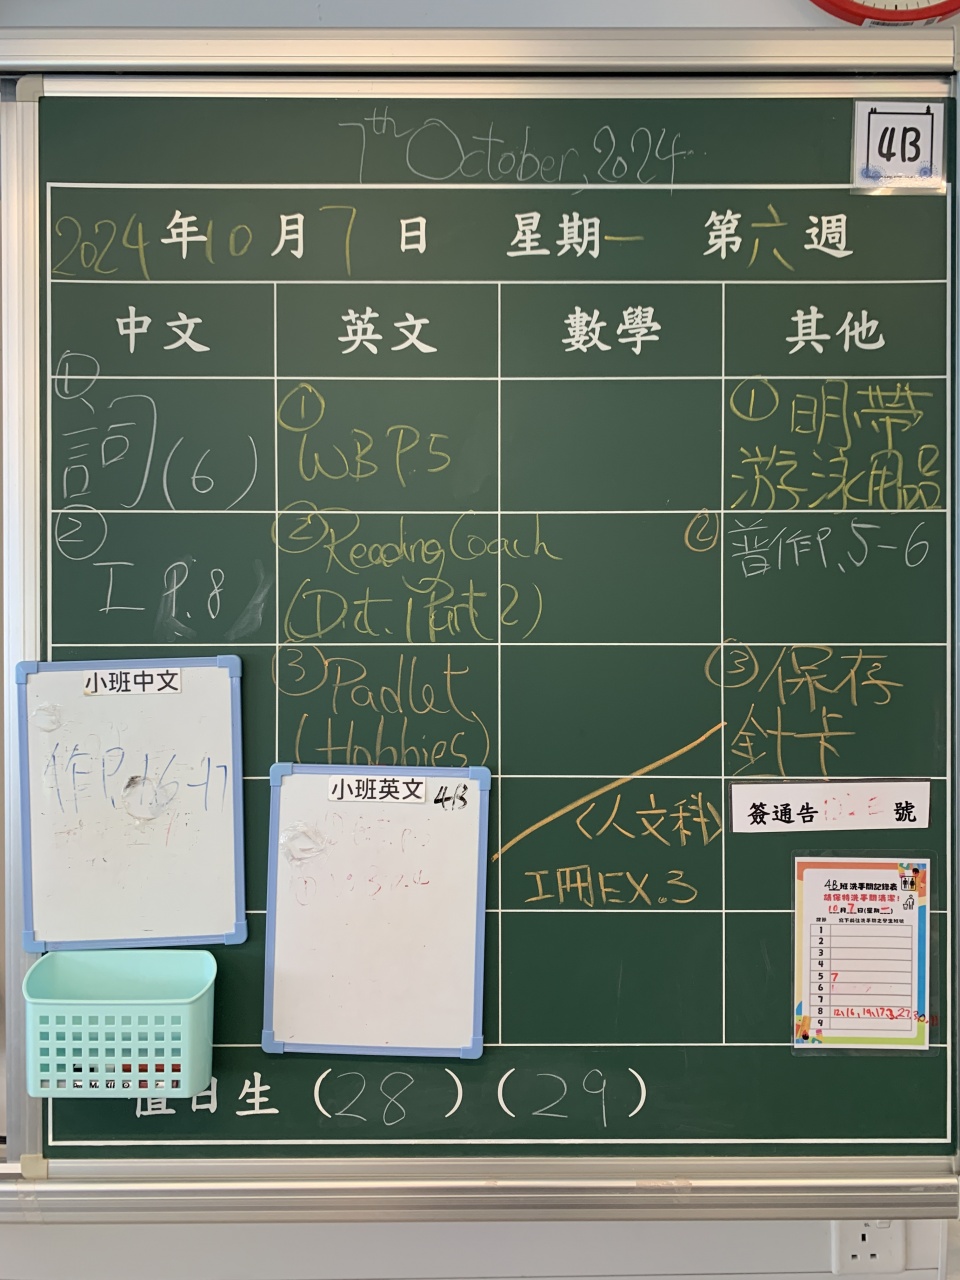 7th October, 2024
4B
2024年10月7日 星期一 第六週
中文 英文 數學 其他
①
詞(6)
②
工 P.8
①
WB P.5
②Reading Coach
(Dict. 1 Part 2)
③Padlet
(Hobbies)
①明帶
游泳用品
②普作P.5-6
③保存
針卡
(人文科)
工冊EX.3
小班中文
作P.16-17
小班英文 4B
簽通告 號
4B班洗手間記錄表
請保持洗手間清潔!
10月7日(星期一)
1
2
3
4
5 7
6
7
8
9
值日生 (28) (29)